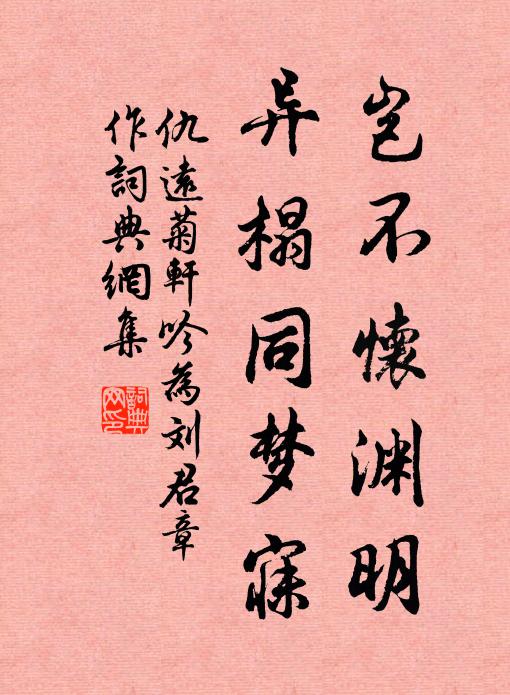 岂不懷渊明
异榻同梦寐
仇遠菊軒吟為刘君章
作詞典網集
詞典网印